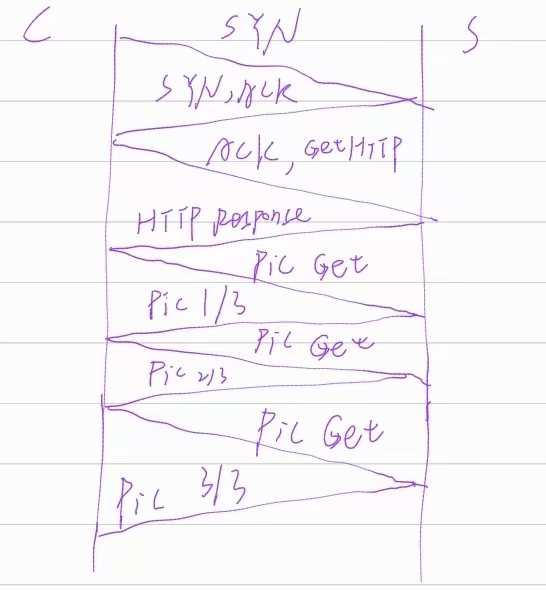 C SYN S
SYN, ACK
ACK, GetHTTP
HTTP Response
Pic Get
Pic 1/3
Pic Get
Pic 2/3
Pic Get
Pic 3/3